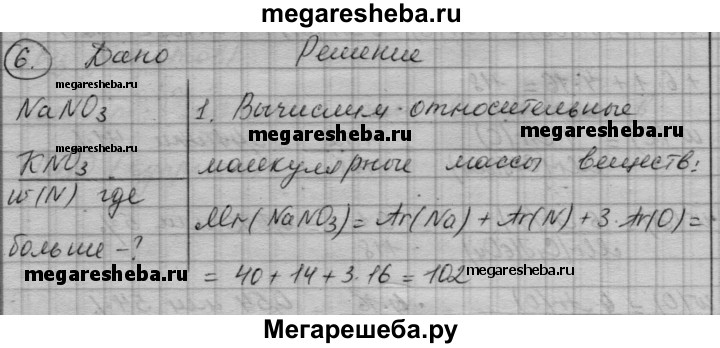 megaresheba.ru
6. Дано Решение
megaresheba.ru
NaNO3 1. Вычислим относительные
megaresheba.ru
megaresheba.ru
KNO3 молекулярные массы веществ:
w(N) где
Mr(NaNO3) = Ar(Na) + Ar(N) + 3·Ar(O) =
больше -?
megaresheba.ru
= 40 + 14 + 3·16 = 102
megaresheba.ru
Мегарешеба.ру